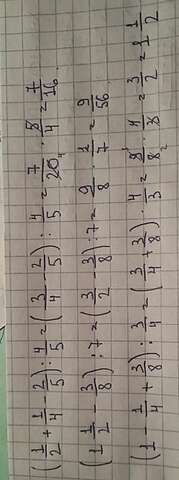 (1/2 + 1/4 - 2/5) : 4/5 = (3/4 - 2/5) : 4/5 = 7/20 · 5/4 = 7/16.
(1 1/2 - 3/8) : 7 = (3/2 - 3/8) : 7 = 9/8 · 1/7 = 9/56.
(1 - 1/4 + 3/8) : 3/4 = (3/4 + 3/8) · 4/3 = 9/8 · 4/3 = 3/2 = 1 1/2